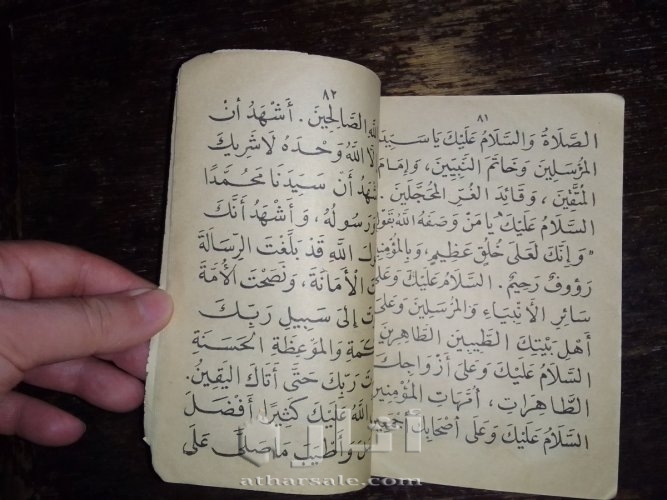 ٨١
الصَّلَاةُ وَالسَّلَامُ عَلَيْكَ يَا سَيِّدَ
المُرْسَلِينَ وَخَاتَمَ النَّبِيِّينَ، وَإِمَامَ
المُتَّقِينَ، وَقَائِدَ الغُرِّ المُحَجَّلِينَ.
السَّلَامُ عَلَيْكَ يَا مَنْ وَصَفَهُ اللهُ بِقَوْلِهِ
"وَإِنَّكَ لَعَلَى خُلُقٍ عَظِيمٍ، وَبِالمُؤْمِنِينَ
رَؤُوفٌ رَحِيمٌ. السَّلَامُ عَلَيْكَ وَعَلَى
سَائِرِ الأَنْبِيَاءِ وَالمُرْسَلِينَ وَعَلَى
أَهْلِ بَيْتِكَ الطَّيِّبِينَ الطَّاهِرِينَ
السَّلَامُ عَلَيْكَ وَعَلَى أَزْوَاجِكَ
الطَّاهِرَاتِ، أُمَّهَاتِ المُؤْمِنِينَ
السَّلَامُ عَلَيْكَ وَعَلَى أَصْحَابِكَ أَجْمَعِينَ
٨٢
الصَّالِحِينَ. أَشْهَدُ أَنْ
اللهُ وَحْدَهُ لَا شَرِيكَ
أَنَّ سَيِّدَنَا مُحَمَّدًا
وَرَسُولُهُ، وَأَشْهَدُ أَنَّكَ
اللهِ قَدْ بَلَّغْتَ الرِّسَالَةَ
الأَمَانَةَ، وَنَصَحْتَ الأُمَّةَ
إِلَى سَبِيلِ رَبِّكَ
وَالمَوْعِظَةِ الحَسَنَةِ
رَبَّكَ حَتَّى أَتَاكَ اليَقِينُ.
اللهُ عَلَيْكَ كَثِيرًا أَفْضَلَ
وَأَطْيَبَ مَا صَلَّى عَلَى
أثار
atharsale.com